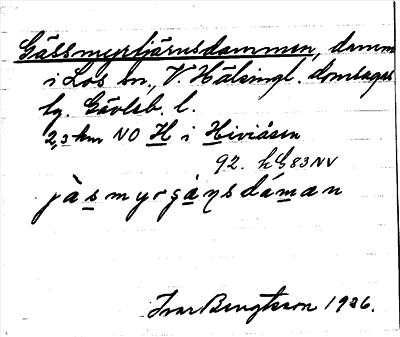 Gässmyrtjärnsdammen, damm
i Los sn., V. Hälsingl. domsagas
tg. Gävleb. l.
2,3 km NO H i Hiviåsen
92. hG83NV
jàsmyrgàɳsdáman
Ivar Bengtsson 1936.